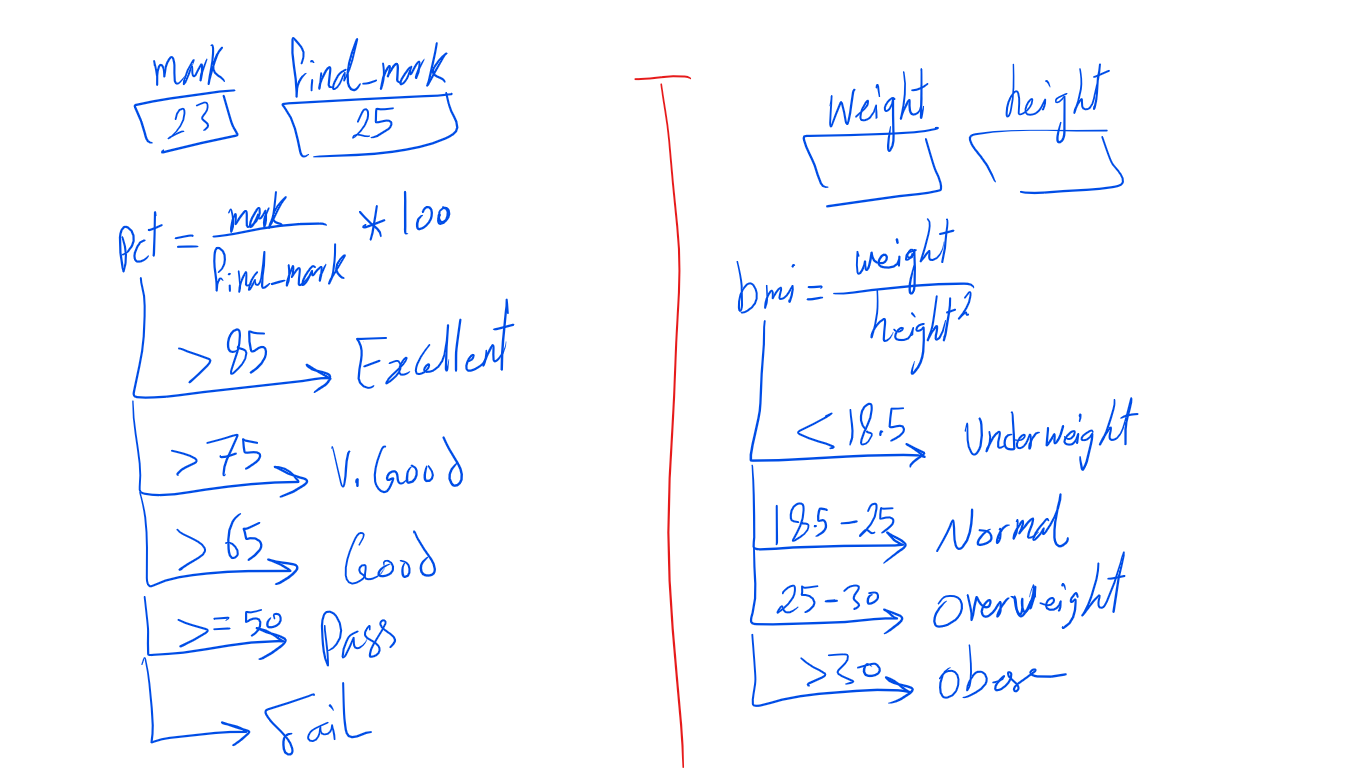 mark final_mark
23 25
pct = mark / final_mark * 100
> 85 Excellent
> 75 V. Good
> 65 Good
>= 50 Pass
Fail
Weight height
bmi = weight / height²
< 18.5 Underweight
18.5 - 25 Normal
25 - 30 Overweight
> 30 Obese